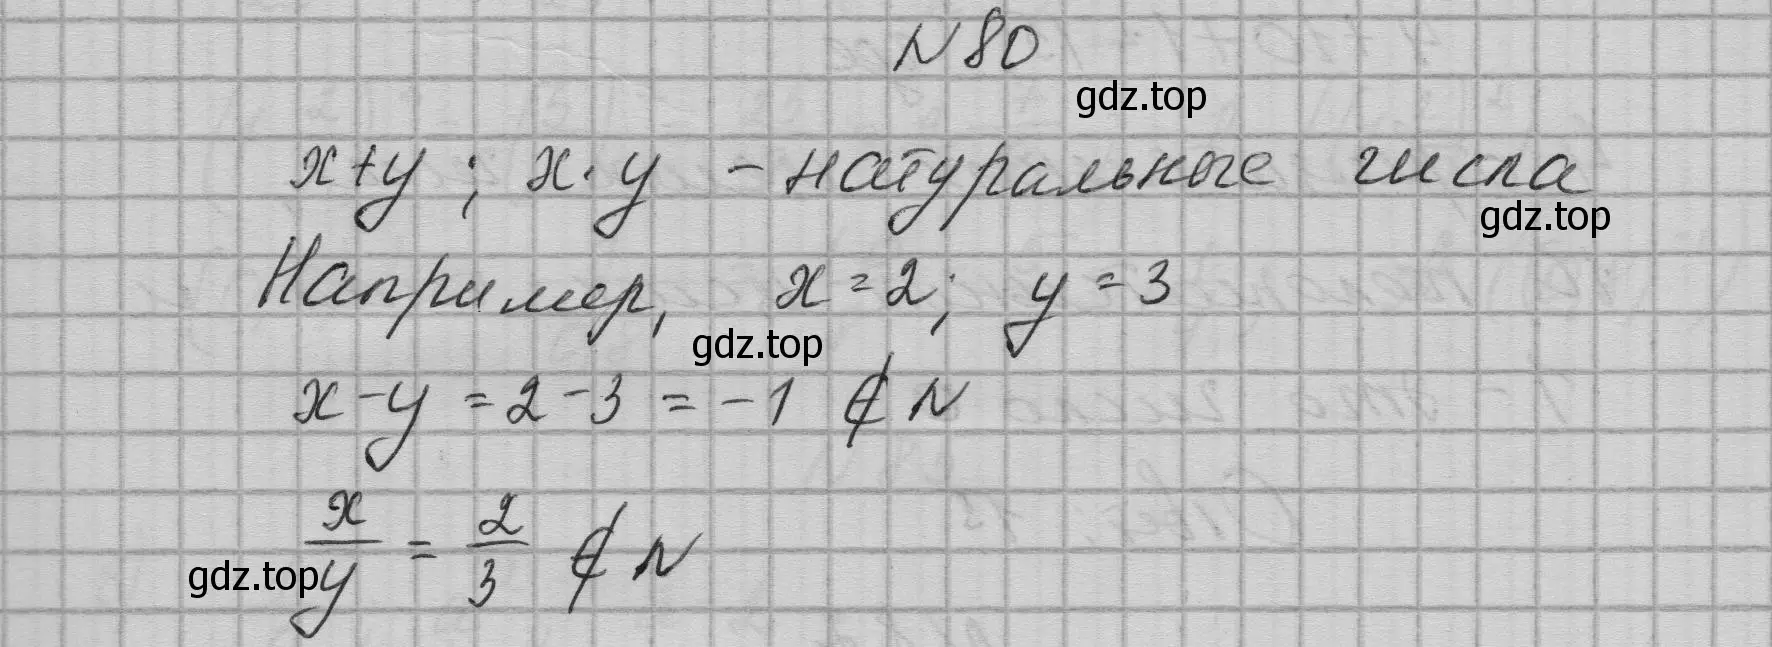 N 80
gdz.top
x+y; x·y – натуральные числа
gdz.top
Например, x = 2; y = 3
gdz.top
x – y = 2 – 3 = – 1 ∉ N
x/y = 2/3 ∉ N
gdz.top